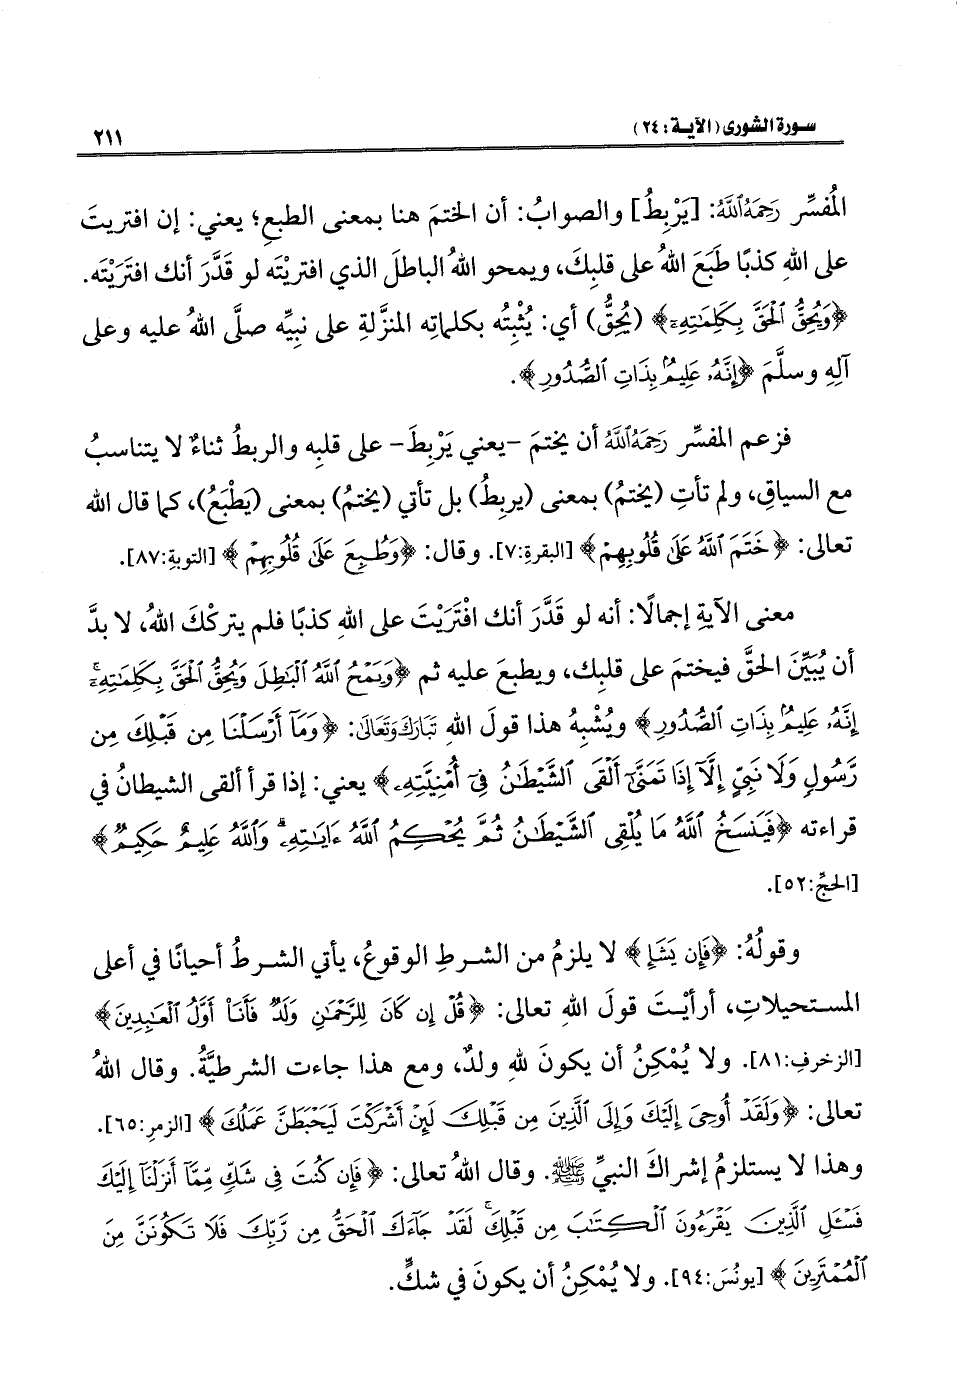 سورة الشورى (الآية: ٢٤)
٢١١
المُفسِّر رَحِمَهُ ٱللَّهُ: [يَرْبِطُ] والصوابُ: أن الختمَ هنا بمعنى الطبعِ؛ يعني: إن افتريتَ
على اللهِ كذبًا طَبَعَ اللهُ على قلبِكَ، ويمحو اللهُ الباطلَ الذي افتريْتَه لو قَدَّرَ أنك افتَرَيْتَه.
﴿وَيُحِقُّ ٱلْحَقَّ بِكَلِمَٰتِهِۦٓ﴾ (يُحِقُّ) أي: يُثْبِتُه بكلماتِه المنزَّلةِ على نبيِّه صلَّى اللهُ عليه وعلى
آلِهِ وسلَّمَ ﴿إِنَّهُۥ عَلِيمٌۢ بِذَاتِ ٱلصُّدُورِ﴾.
فزعم المفسِّر رَحِمَهُ ٱللَّهُ أن يختمَ -يعني يَرْبِطَ- على قلبِه والربطُ ثناءٌ لا يتناسبُ
مع السياقِ، ولم تأتِ (يختمُ) بمعنى (يربطُ) بل تأتي (يختمُ) بمعنى (يَطْبَعُ)، كما قال الله
تعالى: ﴿خَتَمَ ٱللَّهُ عَلَىٰ قُلُوبِهِمْ﴾ [البقرة:٧]. وقال: ﴿وَطُبِعَ عَلَىٰ قُلُوبِهِمْ﴾ [التوبة:٨٧].
معنى الآيةِ إجمالًا: أنه لو قَدَّرَ أنك افْتَرَيْتَ على اللهِ كذبًا فلم يتركْكَ اللهُ، لا بدَّ
أن يُبَيِّنَ الحقَّ فيختمَ على قلبِك، ويطبعَ عليه ثم ﴿وَيَمْحُ ٱللَّهُ ٱلْبَٰطِلَ وَيُحِقُّ ٱلْحَقَّ بِكَلِمَٰتِهِۦٓ ۚ
إِنَّهُۥ عَلِيمٌۢ بِذَاتِ ٱلصُّدُورِ﴾ ويُشْبِهُ هذا قولَ اللهِ تَبَارَكَ وَتَعَالَى: ﴿وَمَآ أَرْسَلْنَا مِن قَبْلِكَ مِن
رَّسُولٍ وَلَا نَبِيٍّ إِلَّآ إِذَا تَمَنَّىٰٓ أَلْقَى ٱلشَّيْطَٰنُ فِىٓ أُمْنِيَّتِهِۦ﴾ يعني: إذا قرأ ألقى الشيطانُ في
قراءته ﴿فَيَنسَخُ ٱللَّهُ مَا يُلْقِى ٱلشَّيْطَٰنُ ثُمَّ يُحْكِمُ ٱللَّهُ ءَايَٰتِهِۦ ۗ وَٱللَّهُ عَلِيمٌ حَكِيمٌ﴾
[الحجِّ:٥٢].
وقولُهُ: ﴿فَإِن يَشَإِ﴾ لا يلزمُ من الشرطِ الوقوعُ، يأتي الشرطُ أحيانًا في أعلى
المستحيلاتِ، أرأيْتَ قولَ اللهِ تعالى: ﴿قُلْ إِن كَانَ لِلرَّحْمَٰنِ وَلَدٌ فَأَنَا۠ أَوَّلُ ٱلْعَٰبِدِينَ﴾
[الزخرفِ:٨١]. ولا يُمْكِنُ أن يكونَ للهِ ولدٌ، ومع هذا جاءت الشرطيَّةُ. وقال اللهُ
تعالى: ﴿وَلَقَدْ أُوحِىَ إِلَيْكَ وَإِلَى ٱلَّذِينَ مِن قَبْلِكَ لَئِنْ أَشْرَكْتَ لَيَحْبَطَنَّ عَمَلُكَ﴾ [الزمرِ:٦٥].
وهذا لا يستلزمُ إشراكَ النبيِّ ﷺ. وقال اللهُ تعالى: ﴿فَإِن كُنتَ فِى شَكٍّ مِّمَّآ أَنزَلْنَآ إِلَيْكَ
فَسْـَٔلِ ٱلَّذِينَ يَقْرَءُونَ ٱلْكِتَٰبَ مِن قَبْلِكَ ۚ لَقَدْ جَآءَكَ ٱلْحَقُّ مِن رَّبِّكَ فَلَا تَكُونَنَّ مِنَ
ٱلْمُمْتَرِينَ﴾ [يونُسَ:٩٤]. ولا يُمْكِنُ أن يكونَ في شكٍّ.